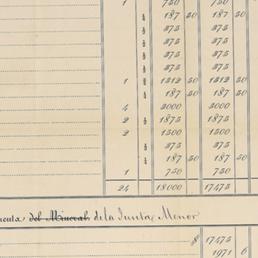 1 750 750
¼ 187 50 187 50
½ 375 375
½ 375 375
½ 375 375
½ 375 375
1 1312 50 1312 50
¼ 187 50 187 50
4 3000 3000
2 1875 1875
2 1500 1500
½ 375 375
¼ 187 50 187 50
1 750 750
24 18000 17475
cuenta del Mineral de la Junta Menor
$ 17475
1971 6